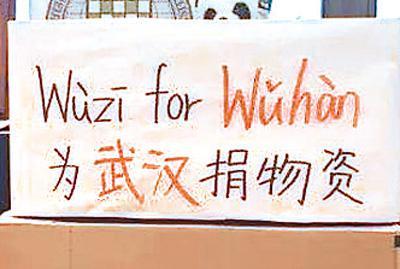 Wùzī for Wǔhàn
为武汉捐物资